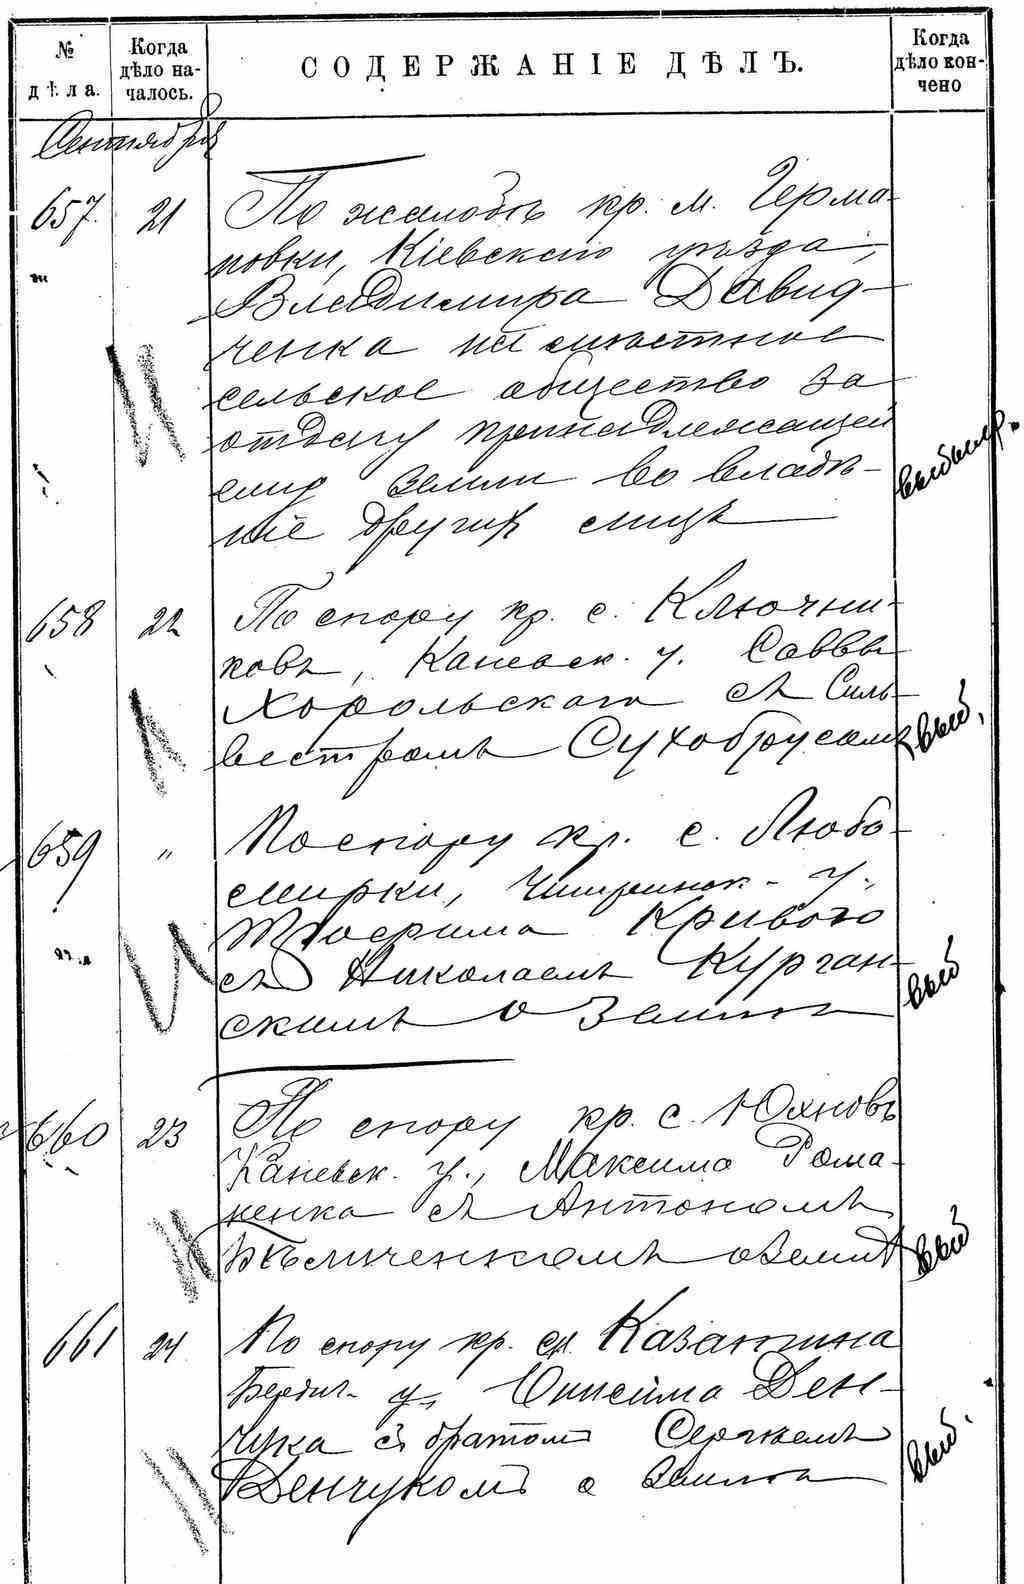 № дѣла.
Когда дѣло началось.
СОДЕРЖАНІЕ ДѢЛЪ.
Когда дѣло кончено
Сентября
657. 21 По жалобѣ кр. м. Герма-
новки, Кіевскаго уѣзда,
Владимира Давид-
ченка на мѣстное
сельское общество за
отдачу принадлежащей
ему земли во владѣ-
ніе другихъ лицъ
658 22 По спору кр. с. Ключни-
ковъ, Каневск. у. Саввы
Хорольскаго съ Силь-
вестромъ Сухобрусомъ
выб,
659 „ По спору кр. с. Любо-
мирки, Чигиринск. у.,
Трофима Кривого
съ Николаемъ Курган-
скимъ о землѣ
выб
660 23 По спору кр. с. Юхновъ
Каневск. у., Максима Рома-
ненка съ Антономъ
Бѣличенкомъ о землѣ
выб
661 24 По спору кр. с. Казатина
Бердич. у. Онисима Ден-
чука съ братомъ Сергѣемъ
Денчукомъ о землѣ
выб.